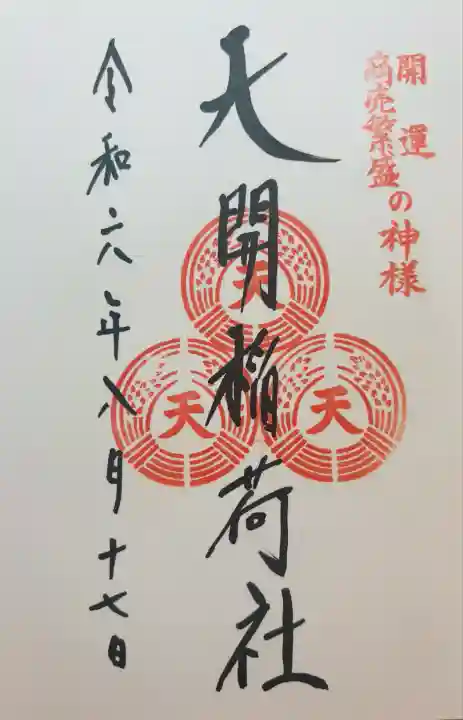 開運
商売繁盛の神様
大開稲荷社
天
天
天
令和六年八月十七日